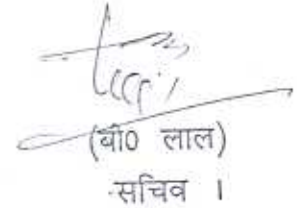 (बी0 लाल)
सचिव ।